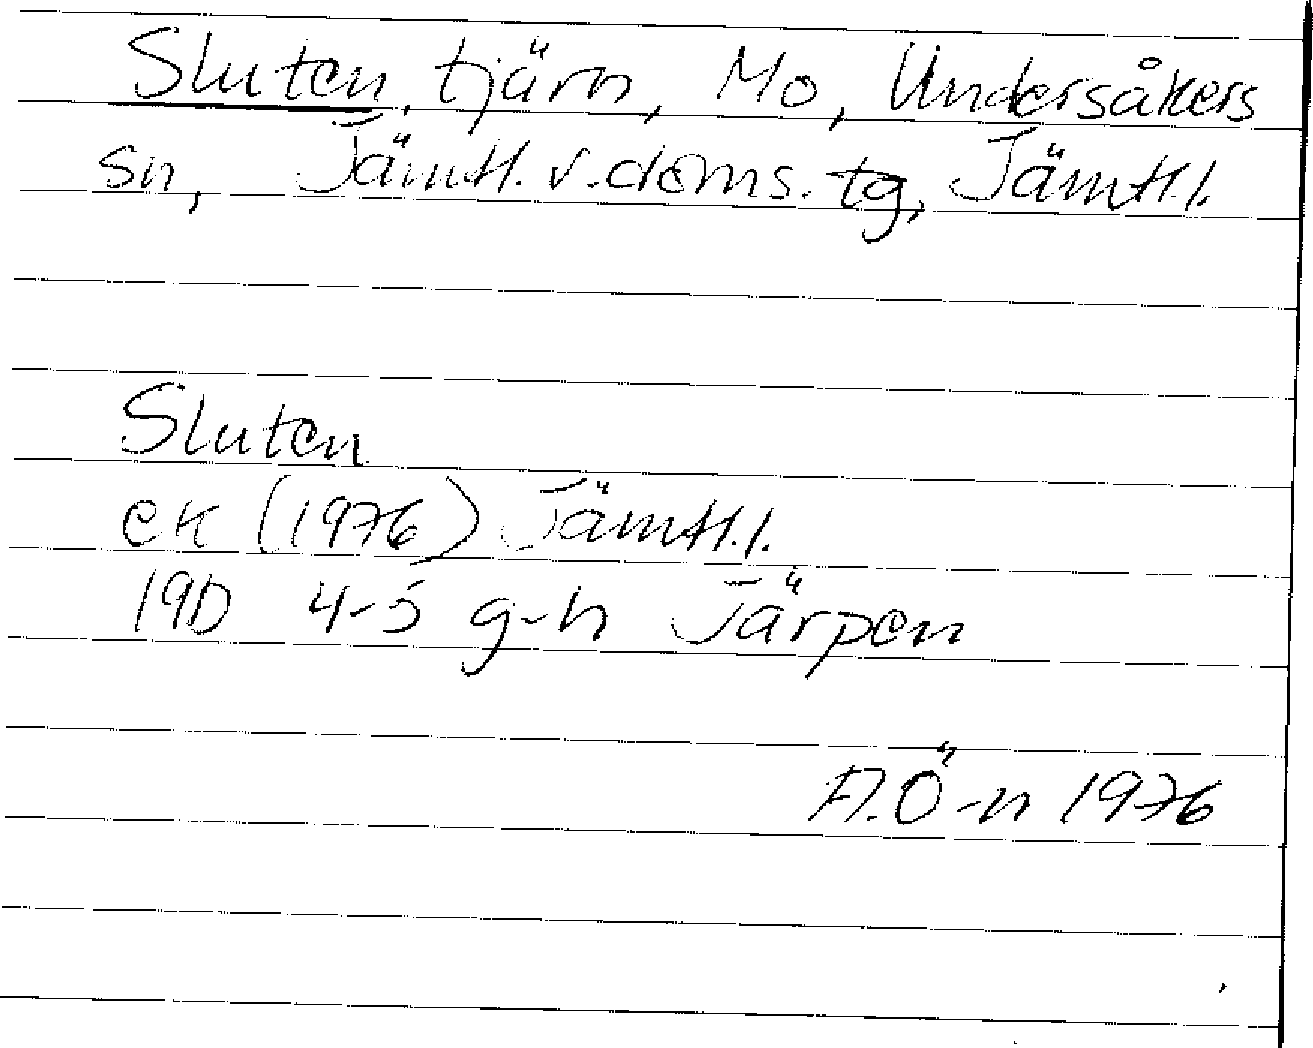 Sluten, tjärn, Mo, Undersåkers
sn, Jämtl. v. doms. tg, Jämtl. l.
Sluten
EK (1976) Jämtl. l.
19D 4-5 g-h Järpen
A.Ö-n 1976